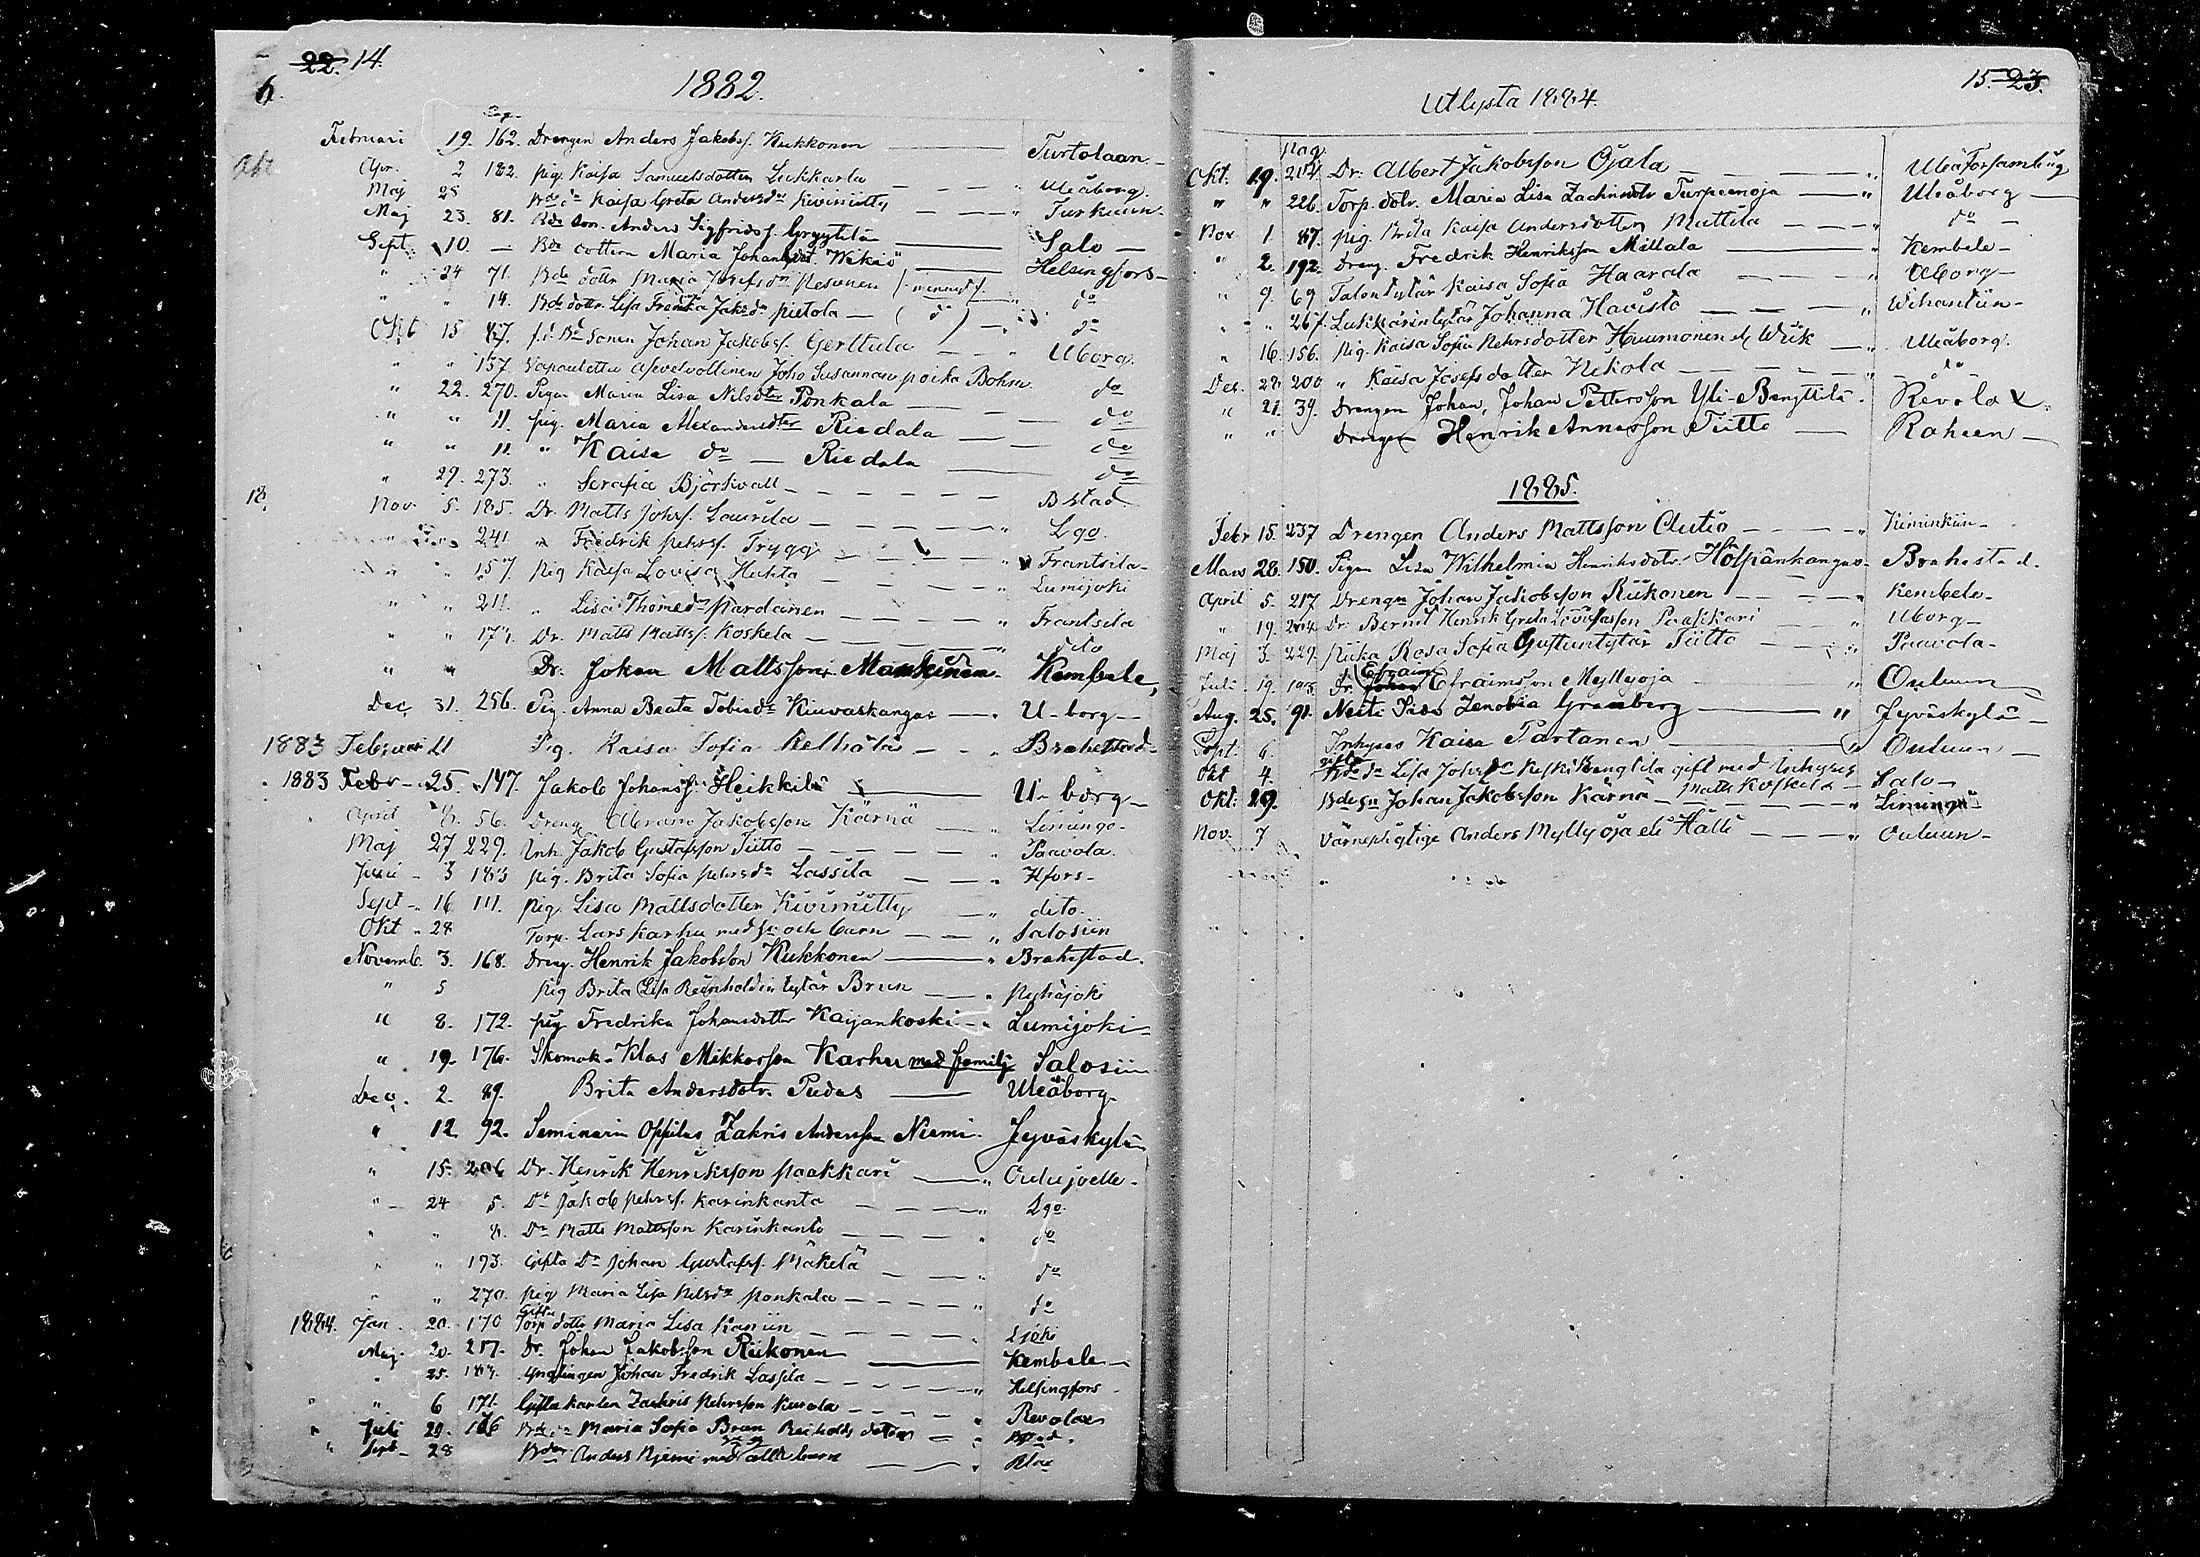 22. 14.
1882.
Februari 19. 162. Drengen Anders Jakobss. Kukkonen Turtolaan
Apr. 2 182. pig. Kaisa Samuelsdotter Lukkarla Uleåborg
Maj 28 Kaisa Greta Andersdr Kiviniitty Turkuun
Maj 23. 81. Bde son. Anders Sigfridss. Gryytilä Salo
Sept. 10 Bde dottern Maria Johansdot. Wekis Helsingfors
" 24 71. Bde dottr Maria Josefsdr Pesonen do
" " 14. Bde dottr. Lisa Fredrika Jaksdr Pietola (do) do
Okt 15 87. f.d. Bde Sonen Johan Jakobss. Gerttula Uborg.
" " 137. Vapautettu asevelvollinen Joho Susannan poika Bohm do
" 22. 270. Pigan Maria Lisa Nilsdtr Ponkala do
" " 11. pig. Maria Alexandersdtr Riedala do
" " 11. " Kaisa do Riedala do
" 29. 273. " Serafia Björkvall Bstad
Nov. 5. 185. Dr. Matts Johss. Laurila Lgo.
" 241. " Fredrik Pehrss. Trygg Frantsila
" " 157. Pig Kaisa Lovisa Huhta Lumijoki
" " 211. " Lisa Thomedr Pardanen Frantsila
" " 177. Dr. Matts Mattss. Koskela dito
" " Dr. Johan Mattsson Mankinen Kempele
Dec. 31. 256. Pig. Anna Beata Tobiedr Kiuvaskangas U-borg
1883 Februar 11 Pig. Kaisa Sofia Kelhälä Brahestad
1883 Febr 25. 147. Jakob Johanss. Heikkilä U-borg
April 8. 56. Dreng Abram Jakobsson Kärnä Limingo
Maj 27 229. Inh. Jakob Gustafsson Tiitto Paavola.
Juni 3 183 pig. Brita Sofia Pehrsdr Lassila Hfors
Sept 16 111. pig. Lisa Mattsdotter Kiviniitty dito.
Okt 28 Torp. Lars Karhu med hu och barn Saloisiin
Novemb. 3. 168. Dreng. Henrik Jakobsson Kukkonen Brahestad.
" 5 pig Brita Lisa Reinholdin tytär Brun Pyhäjoki
" 8. 172. pig Fredrika Johansdotter Kaijankoski Lumijoki
" 19. 176. Skomak. Klas Mikkosson Karhu med familj Salosiin
Dec. 2. 89. Brita Andersdotr. Pudas Uleåborg
" 12. 92. Seminarin Oppilas Zakris Andersson Niemi Jyväskylä
" 15. 206 Dr. Henrik Henriksson Paakkari Oulujoelle
" 24 5. Dr Jakob Pehrss. Karinkanta Lgo.
" " 8. Dr Matts Mattsson Karinkanta do
" " 193. Gifta Dr Johan Gustafss. Mäkelä do
" " 270. pig Maria Lisa Nilsdr Ponkala do
1884. Jan. 20. 170 Gifta Torp dottr Maria Lisa Kaniin Ljoki
Maj 20. 217. Dr. Johan Jakobsson Riikonen Kembele
" 25. 187. Ynglingen Johan Fredrik Lassila Helsingfors
" " 6 171. Gifta karlen Zachris Pehrsson Kuvala Revolax
" Juli 20. 186 Maria Sofia Brun Reinholds dotter Bstad.
" Sept 28 Anders Niemi med alla barn
15. 23.
Utlysta 1884.
pag.
Okt. 19. 204. Dr. Albert Jakobsson Ojala Uleåforsamling
" " 226. Torp. dotr. Maria Lisa Zachrisdotr Turpeenoja Uleåborg
Nov 1 87. pig. Brita Kaisa Andersdotter Mattila do
" 2. 192. Dreng. Fredrik Henriksson Mällala Kembele
" 9. 69 Talontytär Kaisa Sofia Haarala Uborg
" " 267. Lukkarintytär Johanna Havisto Wihantiin
" 16. 156. Pig. Kaisa Sofia Pehrsdotter Huumonen el Wiik Uleåborg.
Dec. 28. 200 " Kaisa Josefsdotter Nikola do
" 21. 39. Drengen Johan, Johan Pettersson Yli-Bengttilä Revolax
" " Drengen Henrik Annasson Tiitto Raheen
1885.
Febr 15. 237 Drengen Anders Mattsson Autio Kiiminkiin
Mars 28. 150. Pigan Lisa Wilhelmia Henriksdotr Hölpänkangas Brahestad.
April 5. 217 Drengn Johan Jakobsson Riikonen Kembele
" 19. 204 Dr Bernt Henrik Greta Lovisasson Paakkari Uborg
Maj 3. 229. Piika Rosa Sofia Gustuntytär Tiitto Paavola
Juli 19. 193 Dr. Johan Efraim Efraimsson Myllyoja Ouluun
Aug. 25. 91. Neiti Ida Zenobia Granberg Jyväskylä
Sept. 6. Inhyses Kaisa Partanen Ouluun
Okt 4. gifta Bde dr Lisa Johsdr Keskibengtila gift med Inhyses Matts Koskela Salo
Okt. 29. Bde sn Johan Jakobsson Kärnä Limingo
Nov. 7 värnepligtige Anders Myllyoja eli Halli Ouluun